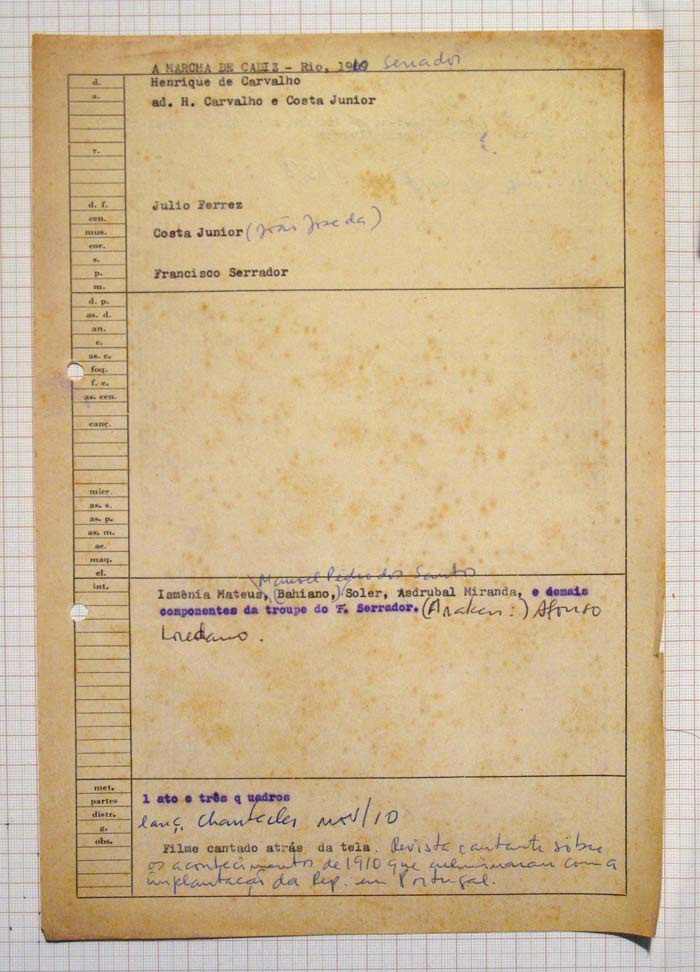 A MARCHA DE CADIZ - Rio, 1910 Serrador
d. Henrique de Carvalho
a. ad. H. Carvalho e Costa Junior
r.
d. f. Julio Ferrez
cen.
mus. Costa Junior (João José da)
cor.
s.
p. Francisco Serrador
m.
d. p.
as. d.
an.
c.
as. c.
foq.
f. c.
as. cen.
canç.
micr.
as. s.
as. p.
as. m.
ac.
maq.
el.
Manuel Pedro dos Santos
int. Ismênia Mateus, (Bahiano,) Soler, Asdrubal Miranda, e demais
componentes da troupe do F. Serrador. (Araken:) Afonso
Loredano.
met.
partes 1 ato e três q uadros
distr. lanç. Chantecler /10
g.
obs. Filme cantado atrás da tela. Revista cantante sôbre
os acontecimentos de 1910 que culminaram com a
implantação da Rep. em Portugal.